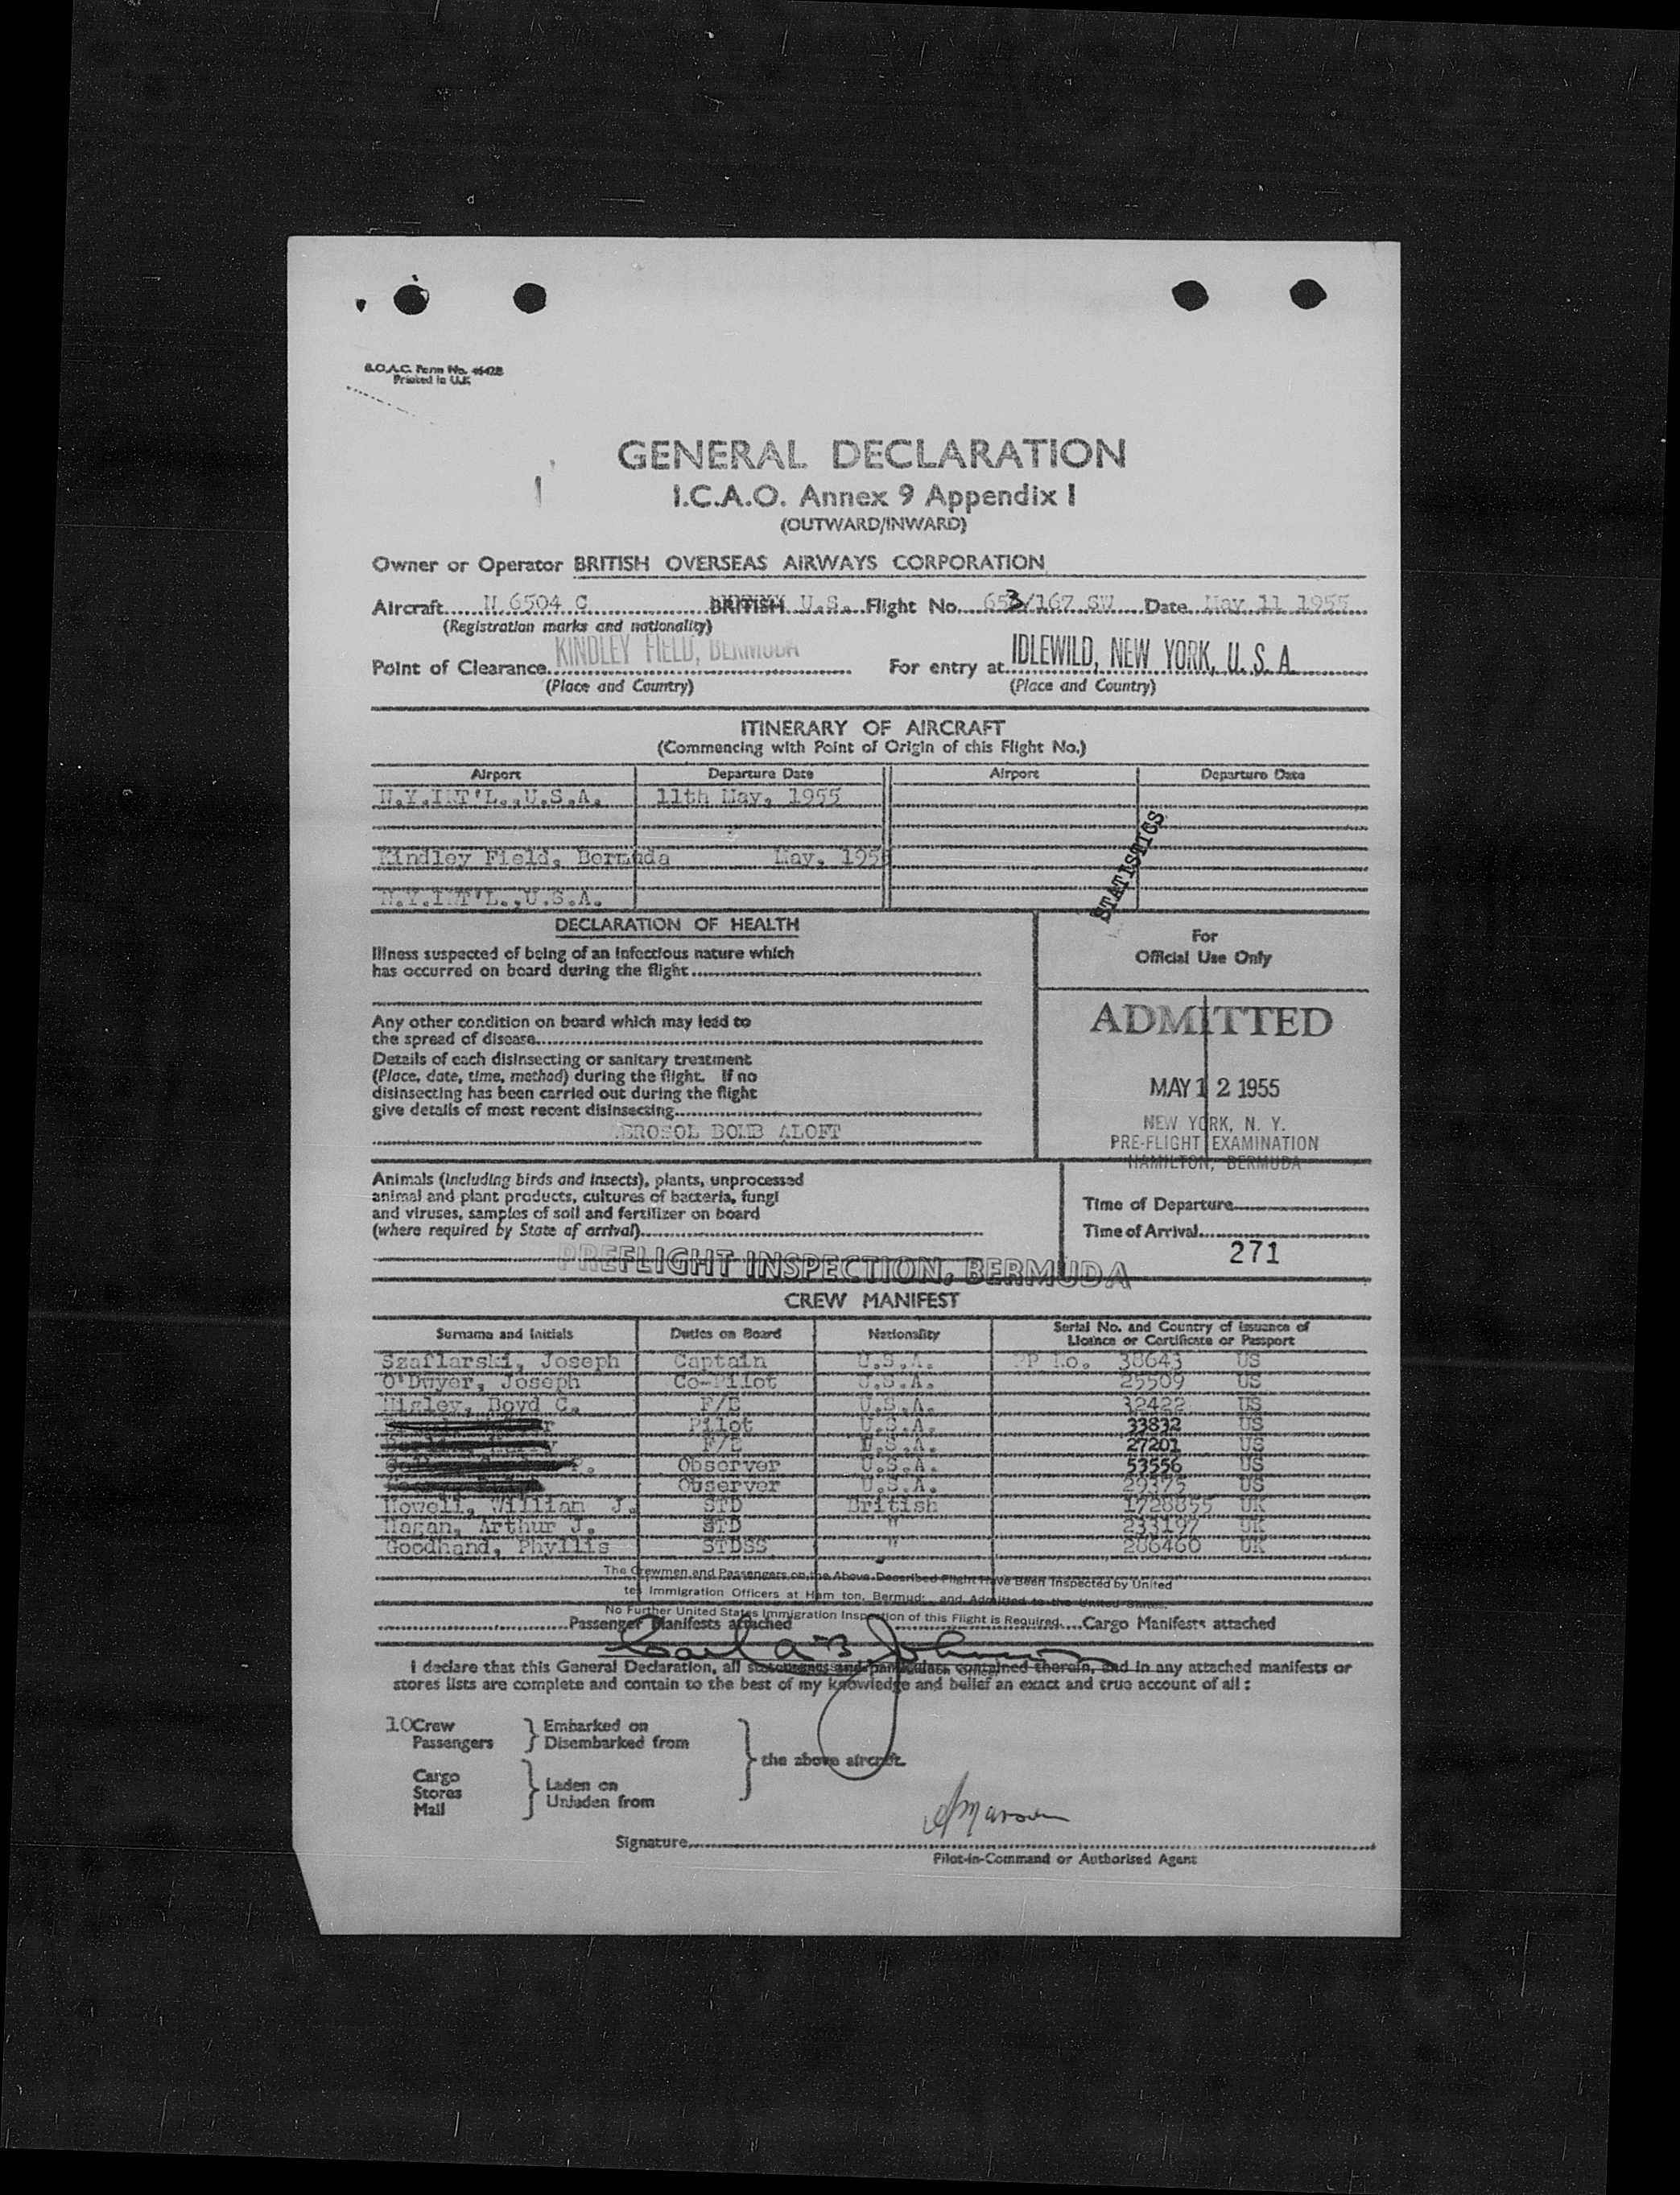 B.O.A.C. Form No.
Printed in U.K.
GENERAL DECLARATION
I.C.A.O. Annex 9 Appendix I
(OUTWARD/INWARD)
Owner or Operator BRITISH OVERSEAS AIRWAYS CORPORATION
Aircraft N 6504 C BRITISH U.S. Flight No. 653/167 SW Date May 11 1955
(Registration marks and nationality)
Point of Clearance KINDLEY FIELD, BERMUDA For entry at IDLEWILD, NEW YORK, U. S. A.
(Place and Country) (Place and Country)
ITINERARY OF AIRCRAFT
(Commencing with Point of Origin of this Flight No.)
Airport Departure Date Airport Departure Date
N.Y.INT'L.,U.S.A. 11th May, 1955
Kindley Field, Bermuda May, 195
N.Y.INT'L.,U.S.A.
STATISTICS
DECLARATION OF HEALTH
Illness suspected of being of an infectious nature which
has occurred on board during the flight
Any other condition on board which may lead to
the spread of disease
Details of each disinsecting or sanitary treatment
(Place, date, time, method) during the flight. If no
disinsecting has been carried out during the flight
give details of most recent disinsecting
AEROSOL BOMB ALOFT
For
Official Use Only
ADMITTED
MAY 12 1955
NEW YORK, N. Y.
PRE-FLIGHT EXAMINATION
HAMILTON, BERMUDA
Animals (including birds and insects), plants, unprocessed
animal and plant products, cultures of bacteria, fungi
and viruses, samples of soil and fertilizer on board
(where required by State of arrival)
Time of Departure
Time of Arrival
271
PREFLIGHT INSPECTION, BERMUDA
CREW MANIFEST
Surname and Initials Duties on Board Nationality Serial No. and Country of Issuance of
Licence or Certificate or Passport
Szaflarski, Joseph Captain U.S.A. PP No. 38643 US
O'Dwyer, Joseph Co-Pilot U.S.A. 25509 US
Migley, Boyd C. F/E U.S.A. 32422 US
Pilot U.S.A. 33832 US
F/E U.S.A. 27201 US
Observer U.S.A. 53556 US
Observer U.S.A. 29375 US
Howell, William J. STD British 1728855 UK
Hagan, Arthur J. STD " 233197 UK
Goodhand, Phyllis STDSS " 286460 UK
The Crewmen and Passengers on the Above Described Flight Have Been Inspected by United
tes Immigration Officers at Ham ton, Bermud and Admitted to the United States.
No Further United States Immigration Inspection of this Flight is Required.
Passenger Manifests attached Cargo Manifests attached
I declare that this General Declaration, all statements and particulars contained therein, and in any attached manifests or
stores lists are complete and contain to the best of my knowledge and belief an exact and true account of all :
10 Crew
Passengers
Embarked on
Disembarked from
Cargo
Stores
Mail
Laden on
Unladen from
the above aircraft.
Signature
Pilot-in-Command or Authorised Agent